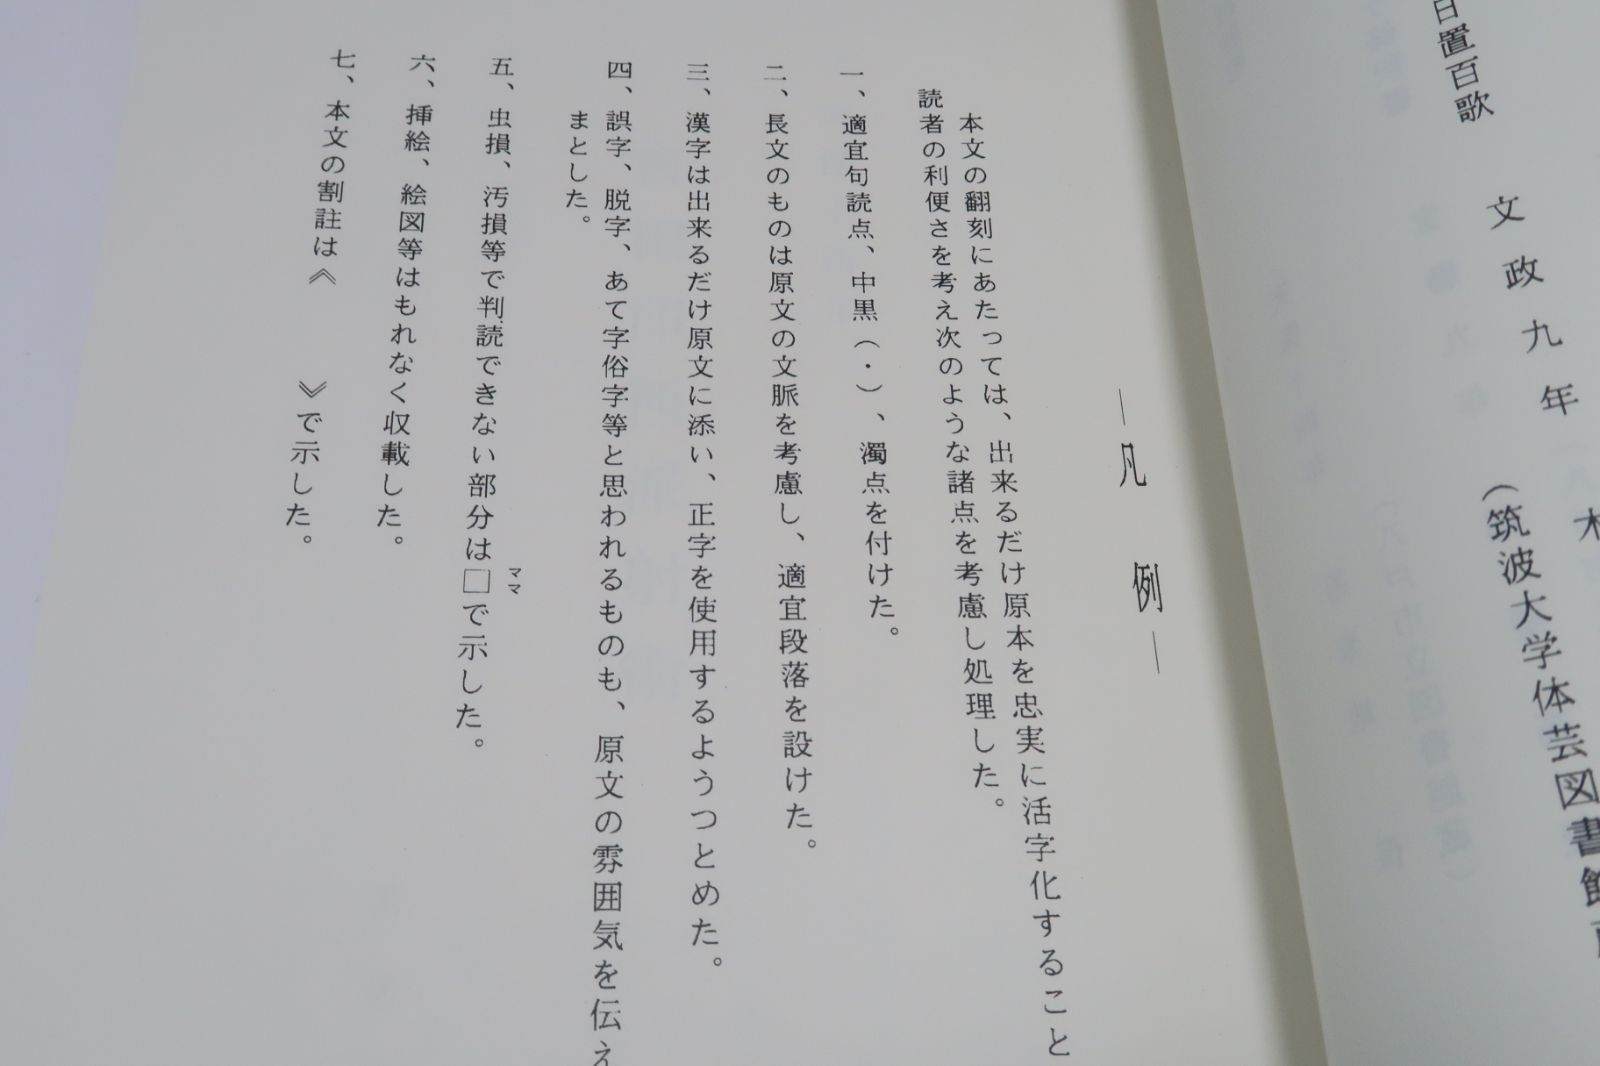 日置百歌
文政九年
（筑波大学体芸図書館
―凡例―
本文の翻刻にあたっては、出来るだけ原本を忠実に活字化すること
読者の利便さを考え次のような諸点を考慮し処理した。
一、適宜句読点、中黒（・）、濁点を付けた。
二、長文のものは原文の文脈を考慮し、適宜段落を設けた。
三、漢字は出来るだけ原文に添い、正字を使用するようつとめた。
四、誤字、脱字、あて字俗字等と思われるものも、原文の雰囲気を伝え
まとした。
五、虫損、汚損等で判読できない部分は□ママで示した。
六、挿絵、絵図等はもれなく収載した。
七、本文の割註は《　　》で示した。